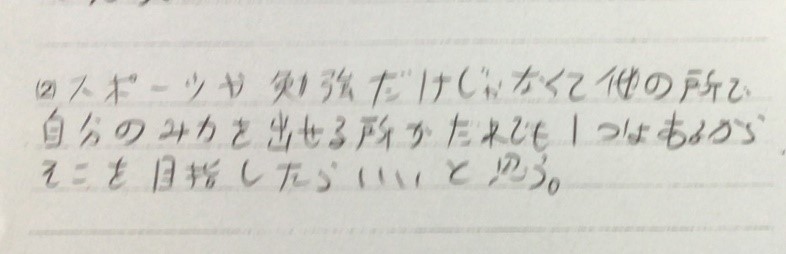 (2)スポーツや勉強だけじゃなくて他の所で、
自分のみ力を出せる所がだれでも1つはあるから
そこを目指したらいいと思う。